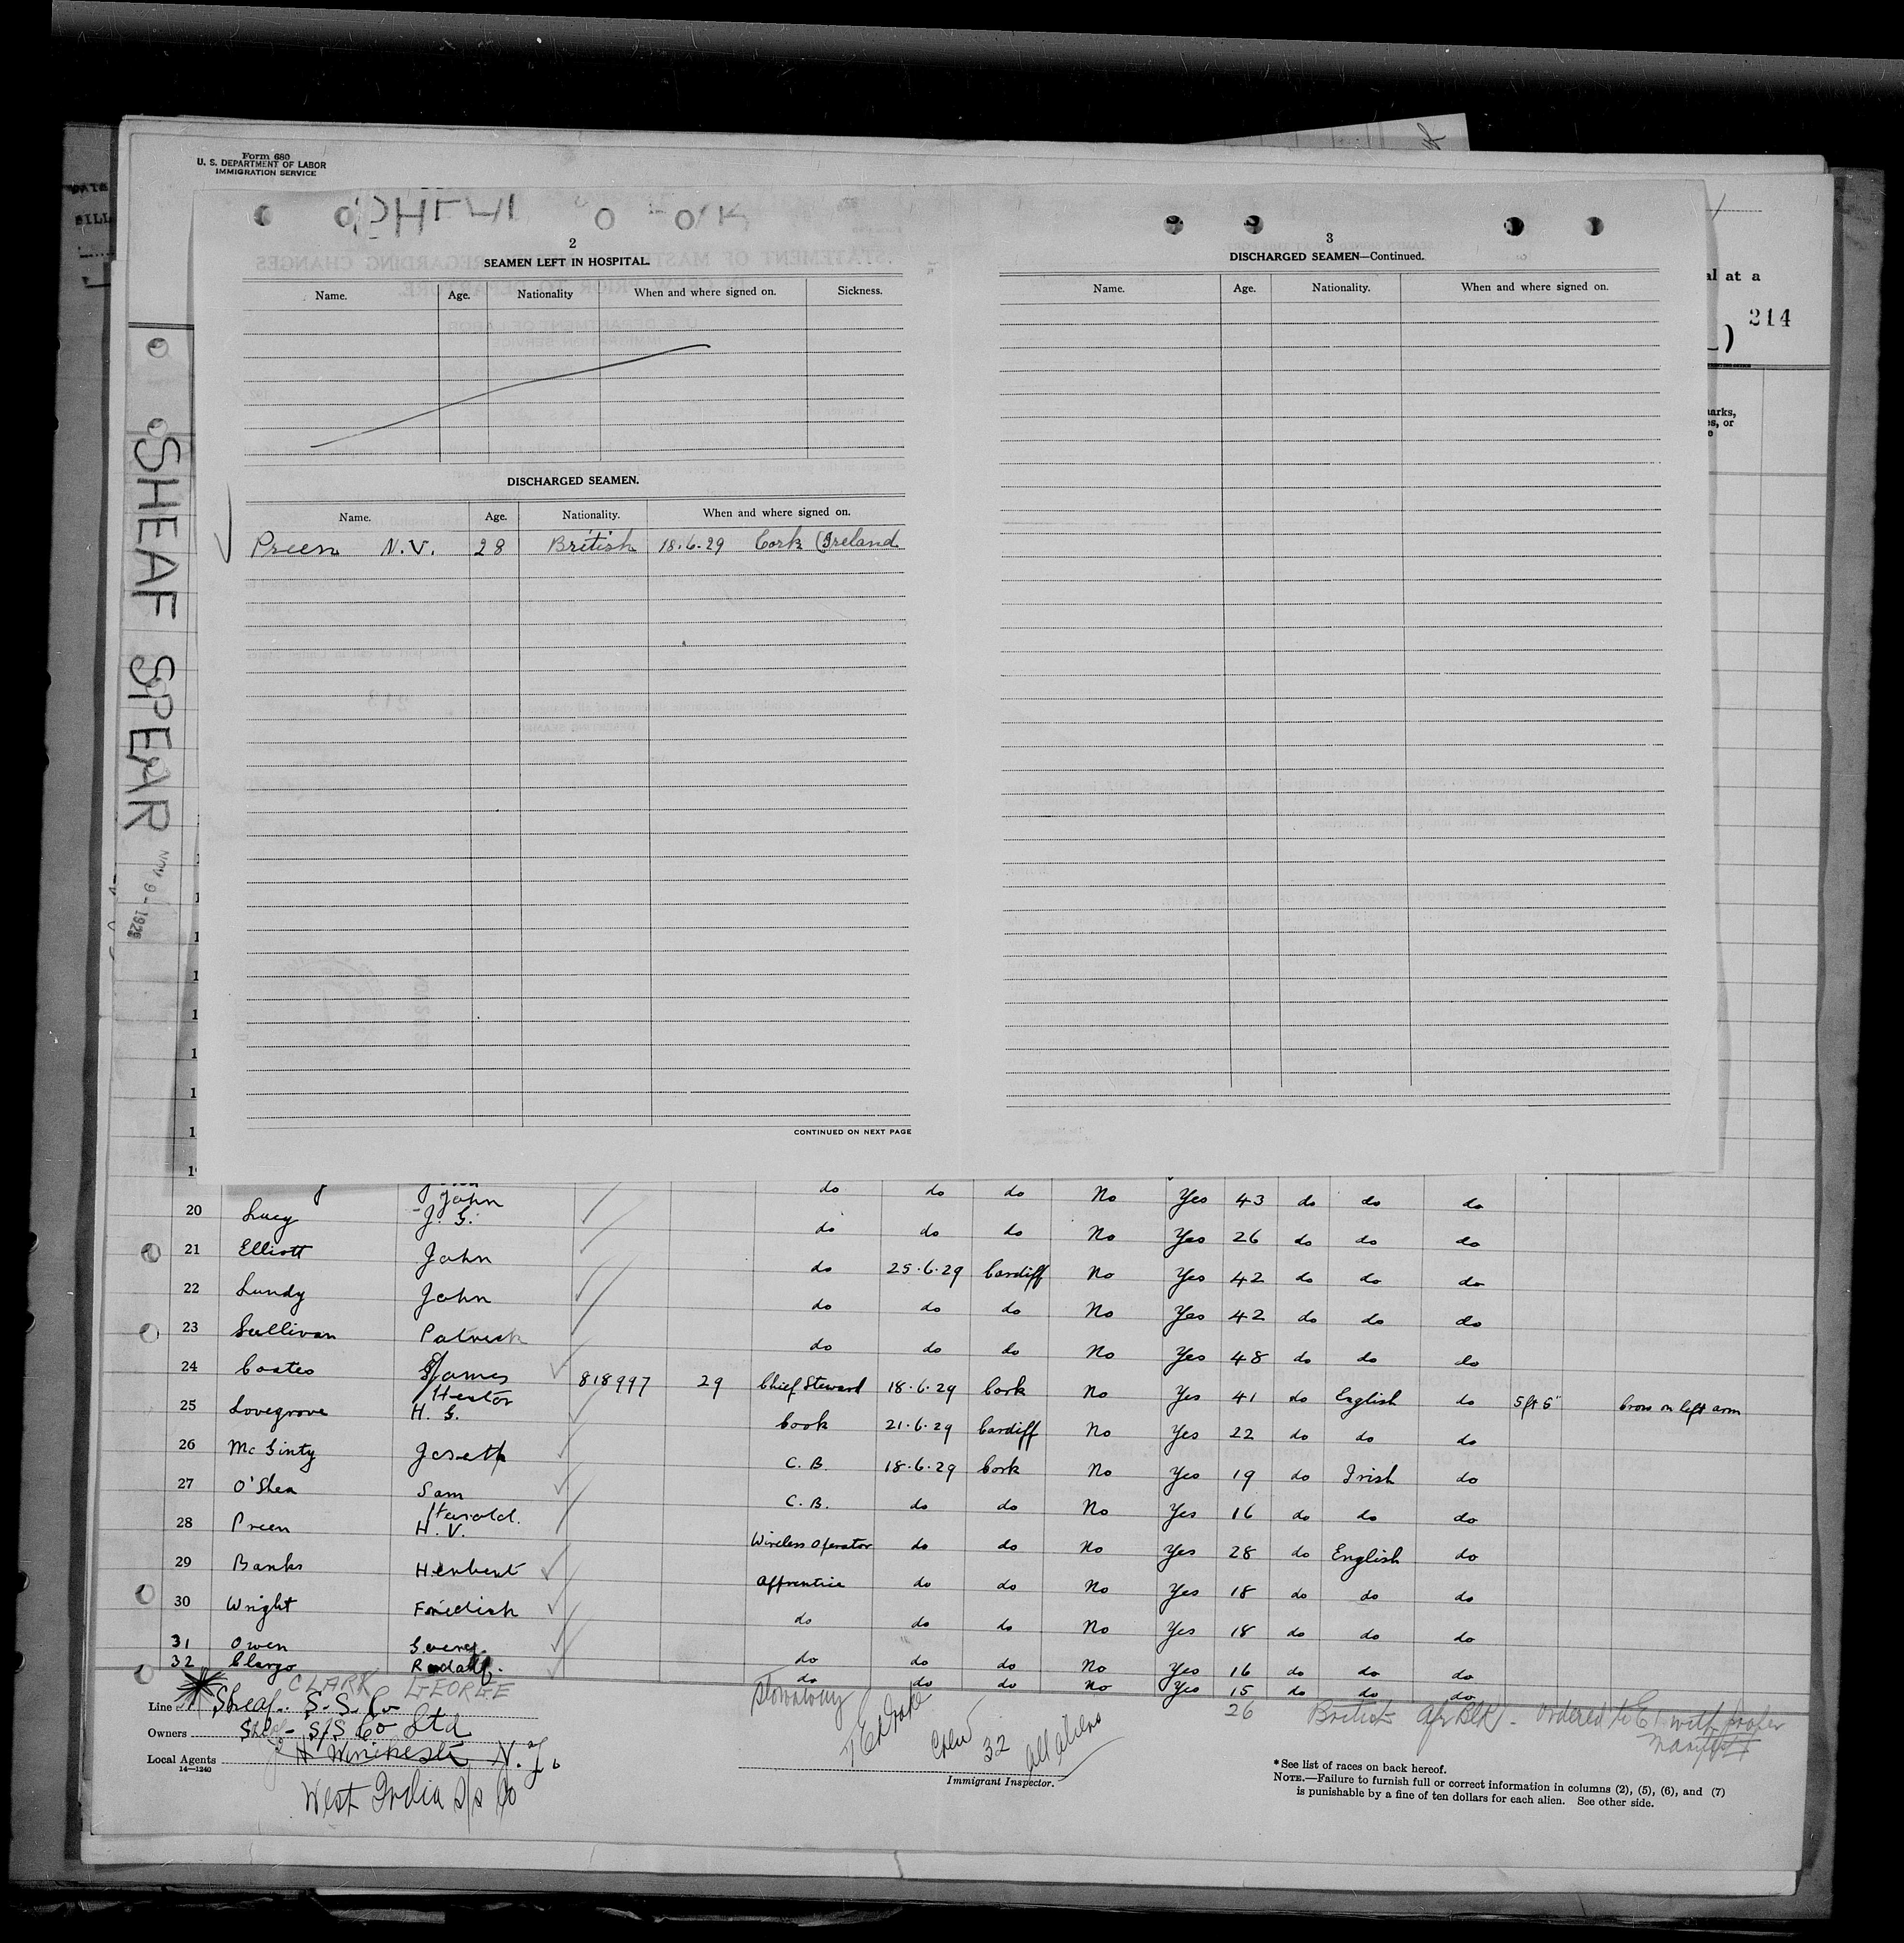 Form 680
U. S. DEPARTMENT OF LABOR
IMMIGRATION SERVICE
2
SEAMEN LEFT IN HOSPITAL.
Name. Age. Nationality When and where signed on. Sickness.
DISCHARGED SEAMEN.
Name. Age. Nationality. When and where signed on.
Preen N.V. 28 British 18.6.29 Cork (Ireland
CONTINUED ON NEXT PAGE
3
DISCHARGED SEAMEN—Continued.
Name. Age. Nationality. When and where signed on.
al at a
214
SHEAF SPEAR
NOV 9 - 1929
John do do do No Yes 43 do do do
20 Lucy J. G. do do do No Yes 26 do do do
21 Elliott John do 25.6.29 Cardiff No Yes 42 do do do
22 Lundy John do do do No Yes 42 do do do
23 Sullivan Patrick do do do No Yes 48 do do do
24 Coates James 818997 29 Chief Steward 18.6.29 Cork No Yes 41 do English do 5 ft 5" Cross on left arm
25 Lovegrove Hector H. G. Cook 21.6.29 Cardiff No Yes 22 do do do
26 Mc Ginty Joseph C. B. 18.6.29 Cork No Yes 19 do Irish do
27 O'Shea Sam C. B. do do No Yes 16 do do do
28 Preen Harold. H. V. Wireless Operator do do No Yes 28 do English do
29 Banks Herbert Apprentice do do No Yes 18 do do do
30 Wright do do do No Yes 18 do do do
31 Owen do do do No Yes 16 do do do
32 Clargo do do do No Yes 15 do do do
CLARK GEORGE Stowaway 26 British ordered to E I with proper manifest
Line Sheaf. S.S. Co
Owners Sheaf - S/S Co Ltd
Local Agents H Winchester N.Y.
14—1240
West India S/s Co
Crew 32 all aliens
Immigrant Inspector.
*See list of races on back hereof.
NOTE.—Failure to furnish full or correct information in columns (2), (5), (6), and (7)
is punishable by a fine of ten dollars for each alien. See other side.